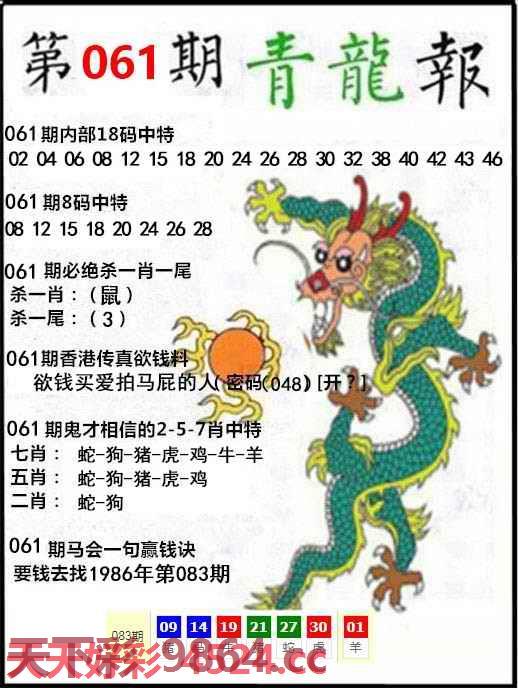 第061期青龍報
061期内部18码中特
02 04 06 08 12 15 18 20 24 26 28 30 32 38 40 42 43 46
061期8码中特
08 12 15 18 20 24 26 28
061期必绝杀一肖一尾
杀一肖：（鼠）
杀一尾：（3）
061期香港传真欲钱料
欲钱买爱拍马屁的人(密码(048)[开？]
061期鬼才相信的2-5-7肖中特
七肖： 蛇-狗-猪-虎-鸡-牛-羊
五肖： 蛇-狗-猪-虎-鸡
二肖： 蛇-狗
061期马会一句赢钱诀
要钱去找1986年第083期
083期 09 14 19 21 27 30 01
猪 蛇 虎 羊
天天好彩-94524.cc